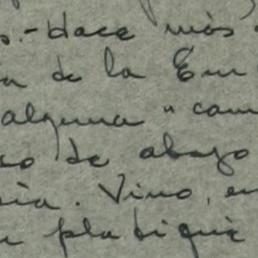 s.- Hace más
ia de la Em
alguna " cam
co de abajo
ria. Vino, en
platiqué